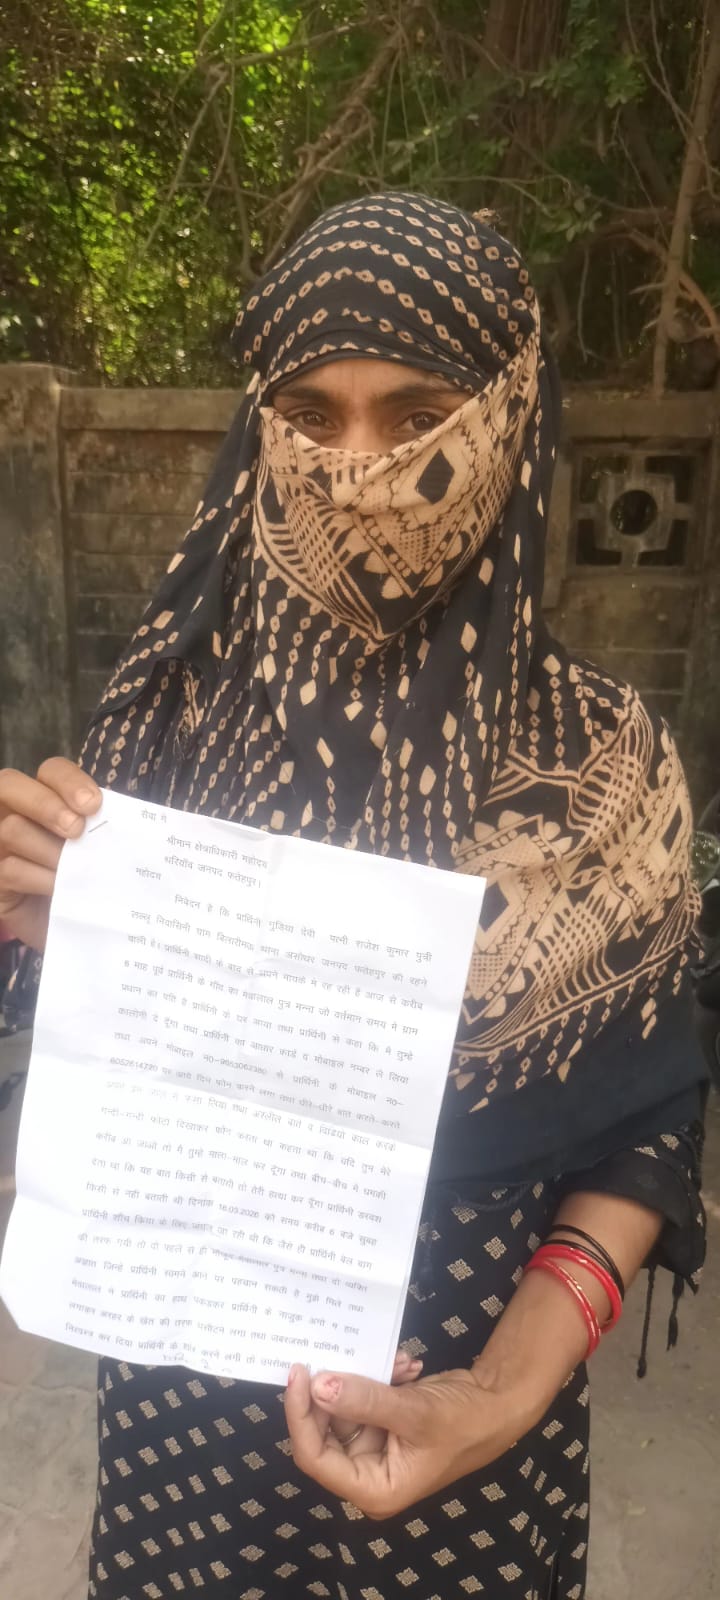 सेवा में
श्रीमान क्षेत्राधिकारी महोदय
थरियाँव जनपद फतेहपुर।
महोदय
निवेदन है कि प्रार्थिनी गुडिया देवी पत्नी राजेश कुमार पुत्री
लल्लू निवासिनी ग्राम थाना असोथर जनपद फतेहपुर की रहने
वाली है। प्रार्थिनी सादी के बाद से अपने मायके मे रह रही है आज से करीब
6 माह पूर्व प्रार्थिनी के गाँव का मेवालाल पुत्र मन्ना जो वर्तमान समय मे ग्राम
प्रधान का पति है प्रार्थिनी के घर आया तथा प्रार्थिनी से कहा कि मै तुम्हे
कालोनी दे दूँगा तथा प्रार्थिनी का आधार कार्ड व मोबाइल नम्बर ले लिया
तथा अपने मोबाइल न0- से प्रार्थिनी के मोबाइल न0-
पर आये दिन फोन करने लगा तथा धीरे-धीरे बात करते-करते
अपने मे फसा लिया तथा अश्लील बाते व विडियो काल करके
गन्दी-गन्दी फोटो दिखाकर फोन करता था कहता था कि यदि तुम मेरे
करीब आ जाओ तो मै तुम्हे माला-माल कर दूँगा तथा बीच-बीच मे धमकी
देता था कि यह बात किसी से बतायी तो तेरी हत्या कर दूँगा प्रार्थिनी डरवश
किसी से नही बताती थी दिनांक 16.03.2026 को समय करीब 6 बजे सुबह
प्रार्थिनी शौच क्रिया के लिए जंगल जा रही थी कि जैसे ही प्रार्थिनी बेल बाग
की तरफ गयी तो दो पहले से ही मौजूद मेवालाल पुत्र मन्ना तथा दो व्यक्ति
अज्ञात जिन्हे प्रार्थिनी सामने आने पर पहचान सकती है मुझे मिले तथा
मेवालाल ने प्रार्थिनी का हाथ पकडकर प्रार्थिनी के नाजुक अंगो मे हाथ
लगाकर अरहर के खेत की तरफ घसीटने लगा तथा जबरजस्ती प्रार्थिनी को
निवस्त्र कर दिया प्रार्थिनी के शोर करने लगी तो उपरोक्त